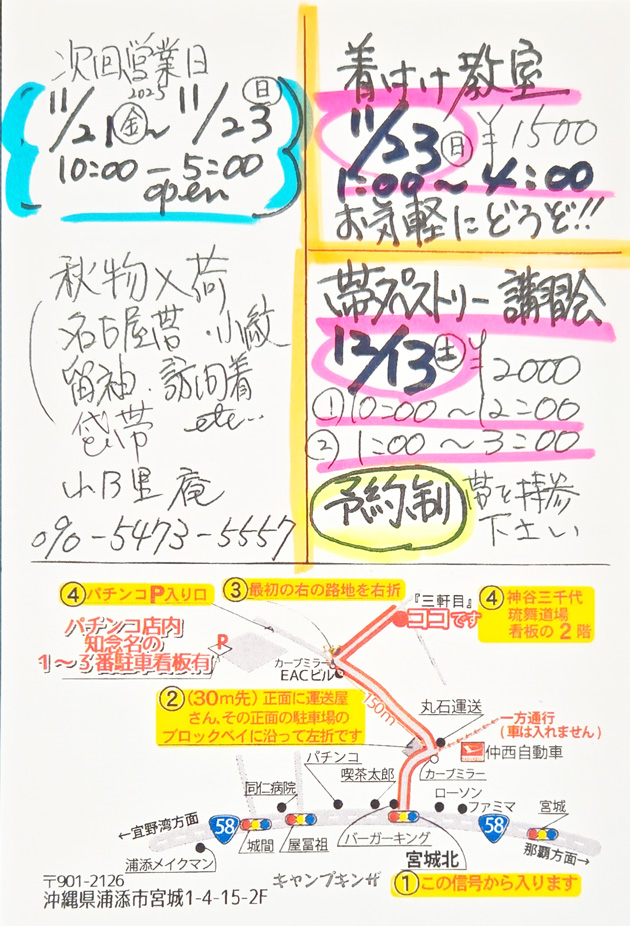 次回営業日
2025
11/21(金)〜11/23(日)
10:00 — 5:00
open
秋物入荷
名古屋帯・小紋
留袖・訪問着
袋帯 etc…
庵
090-5473-5557
着付け教室
11/23(日) ¥1500
1:00〜4:00
お気軽にどうぞ!!
帯タペストリー講習会
12/13(土) ¥2000
① 10:00 〜 12:00
② 1:00 〜 3:00
予約制
帯を持参
下さい
④パチンコP入り口
③最初の右の路地を右折
『三軒目』
ココです
④神谷三千代
琉舞道場
看板の2階
パチンコ店内
知念名の
1〜3番駐車看板有
P
カーブミラー
EACビル
②(30m先)正面に運送屋
さん、その正面の駐車場の
ブロックベイに沿って左折です
150m
丸石運送
一方通行
(車は入れません)
仲西自動車
カーブミラー
パチンコ
喫茶太郎
同仁病院
ローソン
ファミマ
宮城
←宜野湾方面
58
城間
屋富祖
バーガーキング
58
那覇方面→
浦添メイクマン
宮城北
キャンプキンザー
①この信号から入ります
〒901-2126
沖縄県浦添市宮城1-4-15-2F